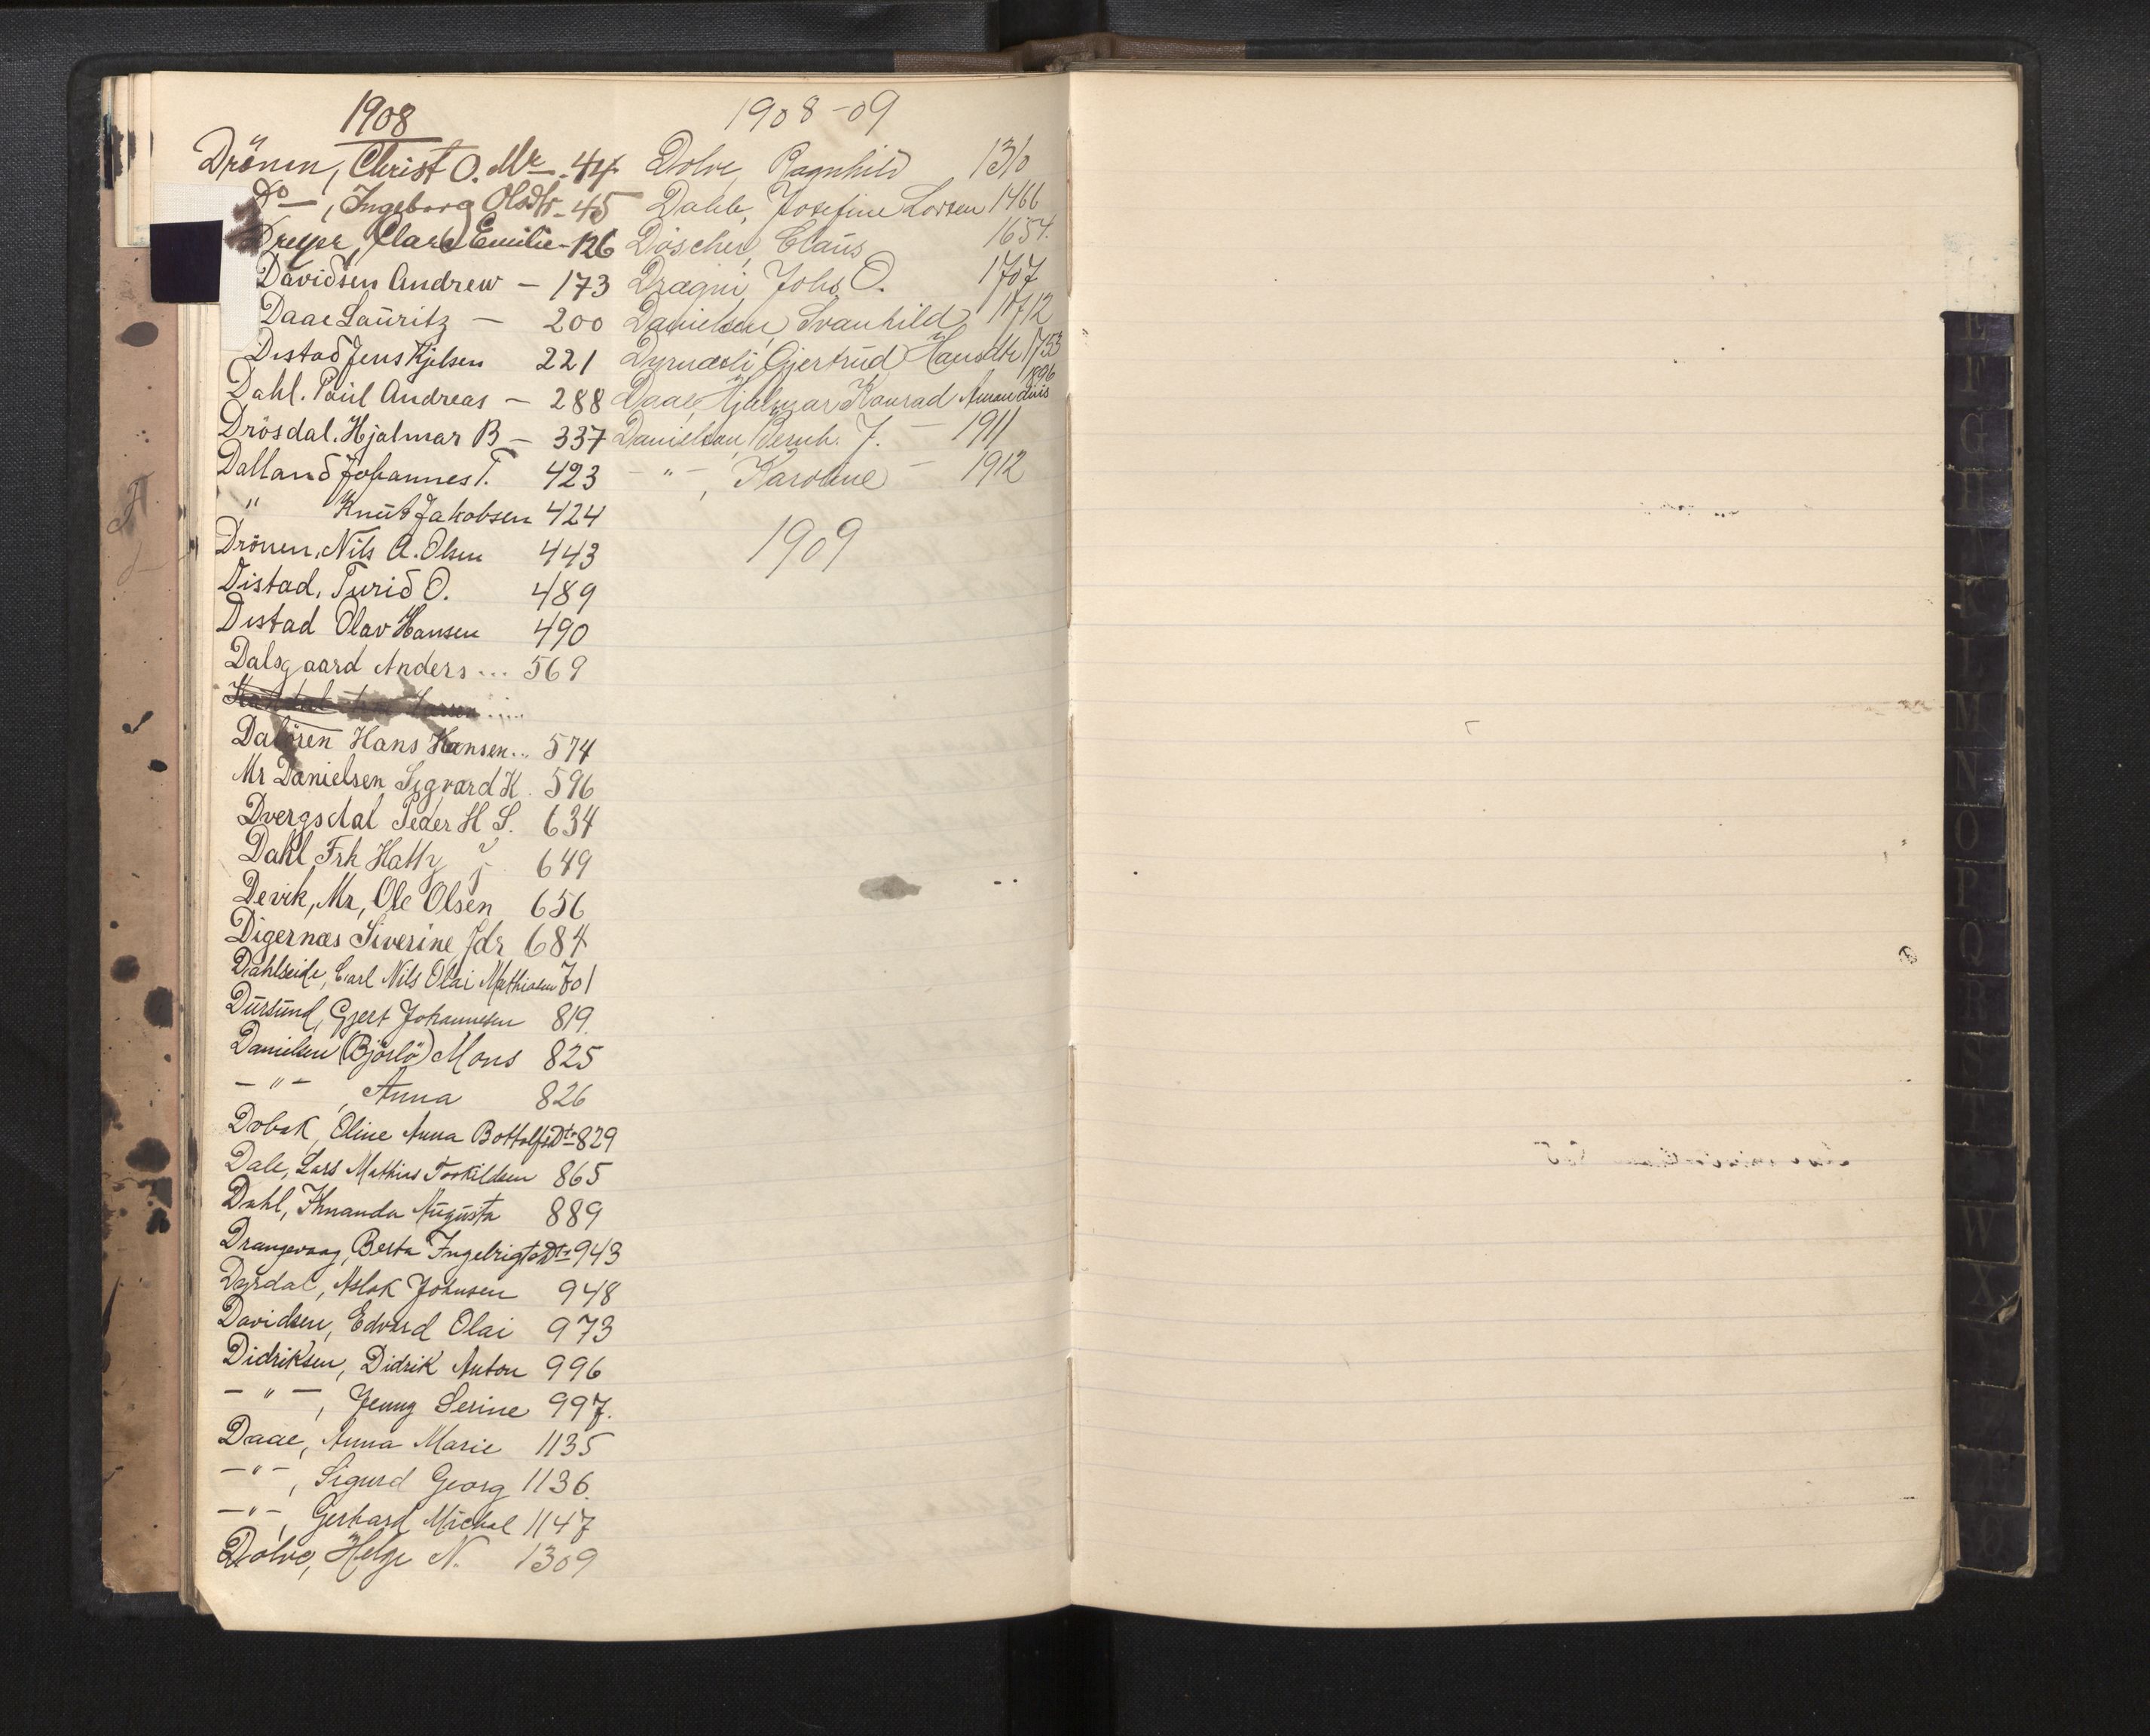 1908
Drönen, Christ O. Mr - 44
Do, Ingeborg Olsdtr - 45
Dreyer, Clara Emilie - 126
Davidsen Andrew - 173
Daae Lauritz - 200
Distad Jens Kjelsen 221
Dahl. Paul Andreas - 288
Drösdal. Hjalmar B - 337
Dalland Johannes T. 423
" Knut Jakobsen 424
Drönen, Nils A. Olsen 443
Distad, Turid O. 489
Distad Olav Hansen 490
Dalsgaard Anders ... 569
Dalören Hans Hansen... 574
Mr Danielsen Sigvard K. 596
Dvergsdal Peder H S. 634
Dahl Frk Hatty 649
Devik, Mr, Ole Olsen 656
Digernæs Siverine Jdr 684
Dahlseide, Carl Nils Olai Mathiasen 701
Dursund, Gjert Johannesen 819.
Danielsen (Björlö) Mons 825
- " - , Anna 826
Dobak, Oline Anna BottolfsDtr 829
Dale, Lars Mathias Torkildsen 865
Dahl, Augusta 889
Drangevaag, Berta IngebrigtsDtr 943
Dyrdal, Aslak Johnsen 948
Davidsen, Edvard Olai 973
Didriksen, Didrik Anton 996
- " - , Jenny Serine 997.
Daae, Anna Marie 1135
- " - , Sigurd Georg 1136.
- " - , Gerhard Mickal 1147
Dolve, Helge N. 1309
1908-09
Dolve, Ragnhild 1310
Dahle, Josefine Larsen 1466
Döscher, Claus 1654.
Dragni, Johs. O. 1707
Danielsen, Svanhild 1712
Dyrnæsli, Gjertrud Hansdtr 1753
Daae, Hjalmar Konrad Amandus 1896
Danielsen, Bernh. J. - 1911
- " - , Karoline - 1912
1909
E
F
G
H
L
M
N
O
P
Q
R
S
T
W
X